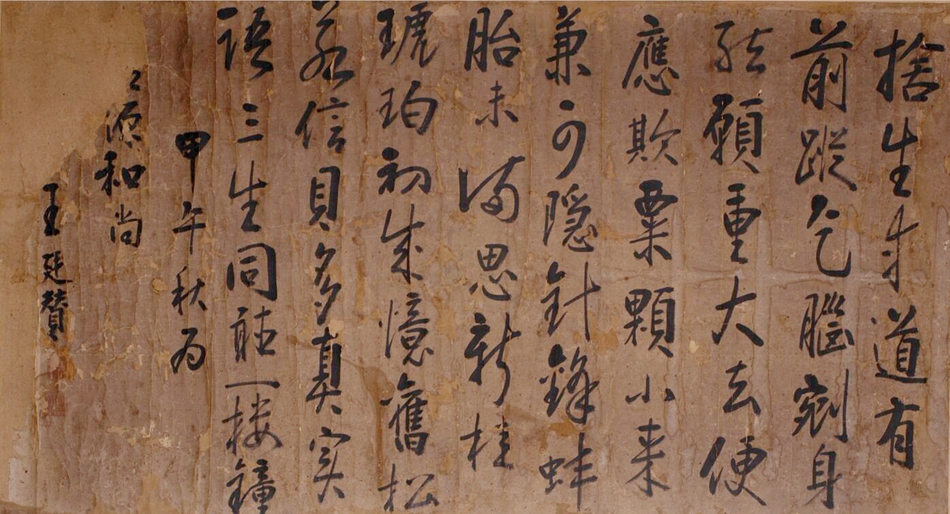 捨生求道有
前蹤乞腦剜身
結願重大去便
應欺粟顆小来
兼可隠針鋒蚌
胎未滿思新桂
琥珀初成憶舊松
若信貝多真实
語三生同聽一楼鐘
甲午秋为
源和尚
王廷賛